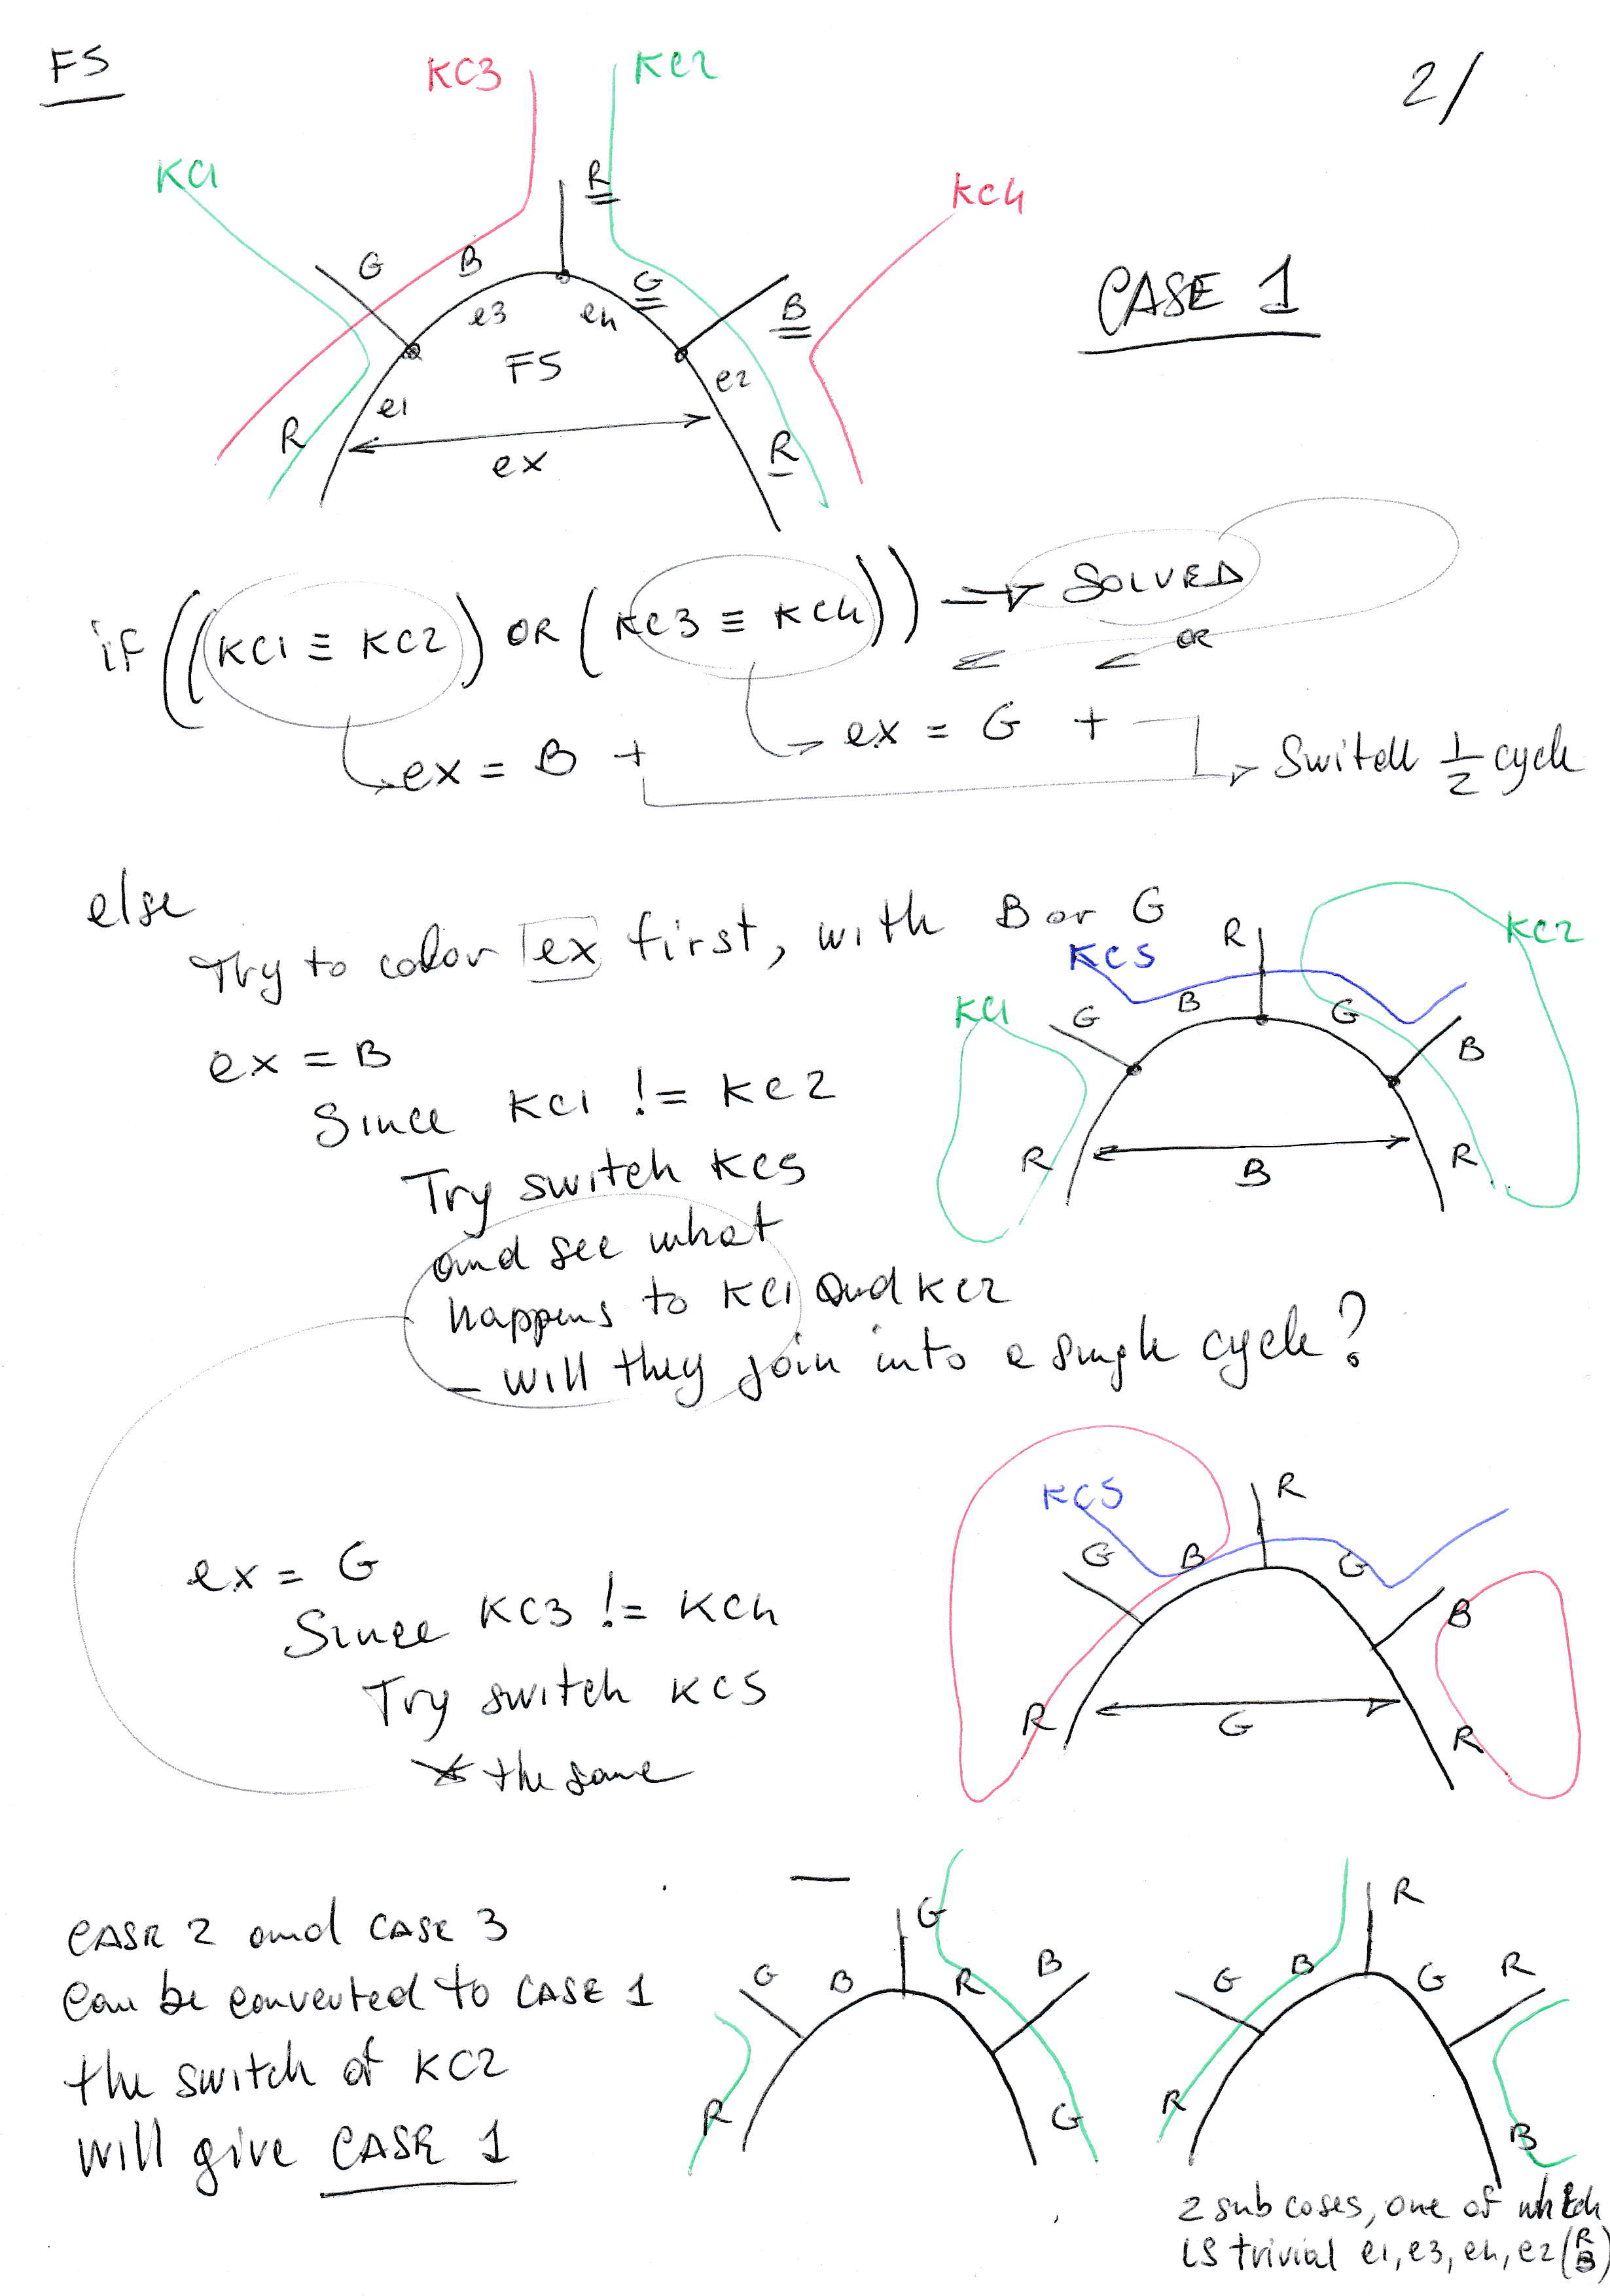 F5
2/
KC3 KC2
KC1 KC4
R
G B G B
e3 e4
F5 e2
e1
R ex R
CASE 1
if ((KC1 ≡ KC2) OR (KC3 ≡ KC4)) → SOLVED
OR
ex = B + ex = G + Switch 1/2 cycle
else
Try to color ex first, with B or G
ex = B
Since KC1 != KC2
Try switch KC5
and see what
happens to KC1 and KC2
- will they join into a single cycle?
KC5 R KC2
KC1 G B G B
R B R
ex = G
Since KC3 != KC4
Try switch KC5
the same
KC5 R
G B G B
R G R
CASE 2 and CASE 3
can be converted to CASE 1
the switch of KC2
will give CASE 1
G
G B R B
R G
R
G B G R
R B
2 sub cases, one of which
is trivial e1, e3, e4, e2 (R B)